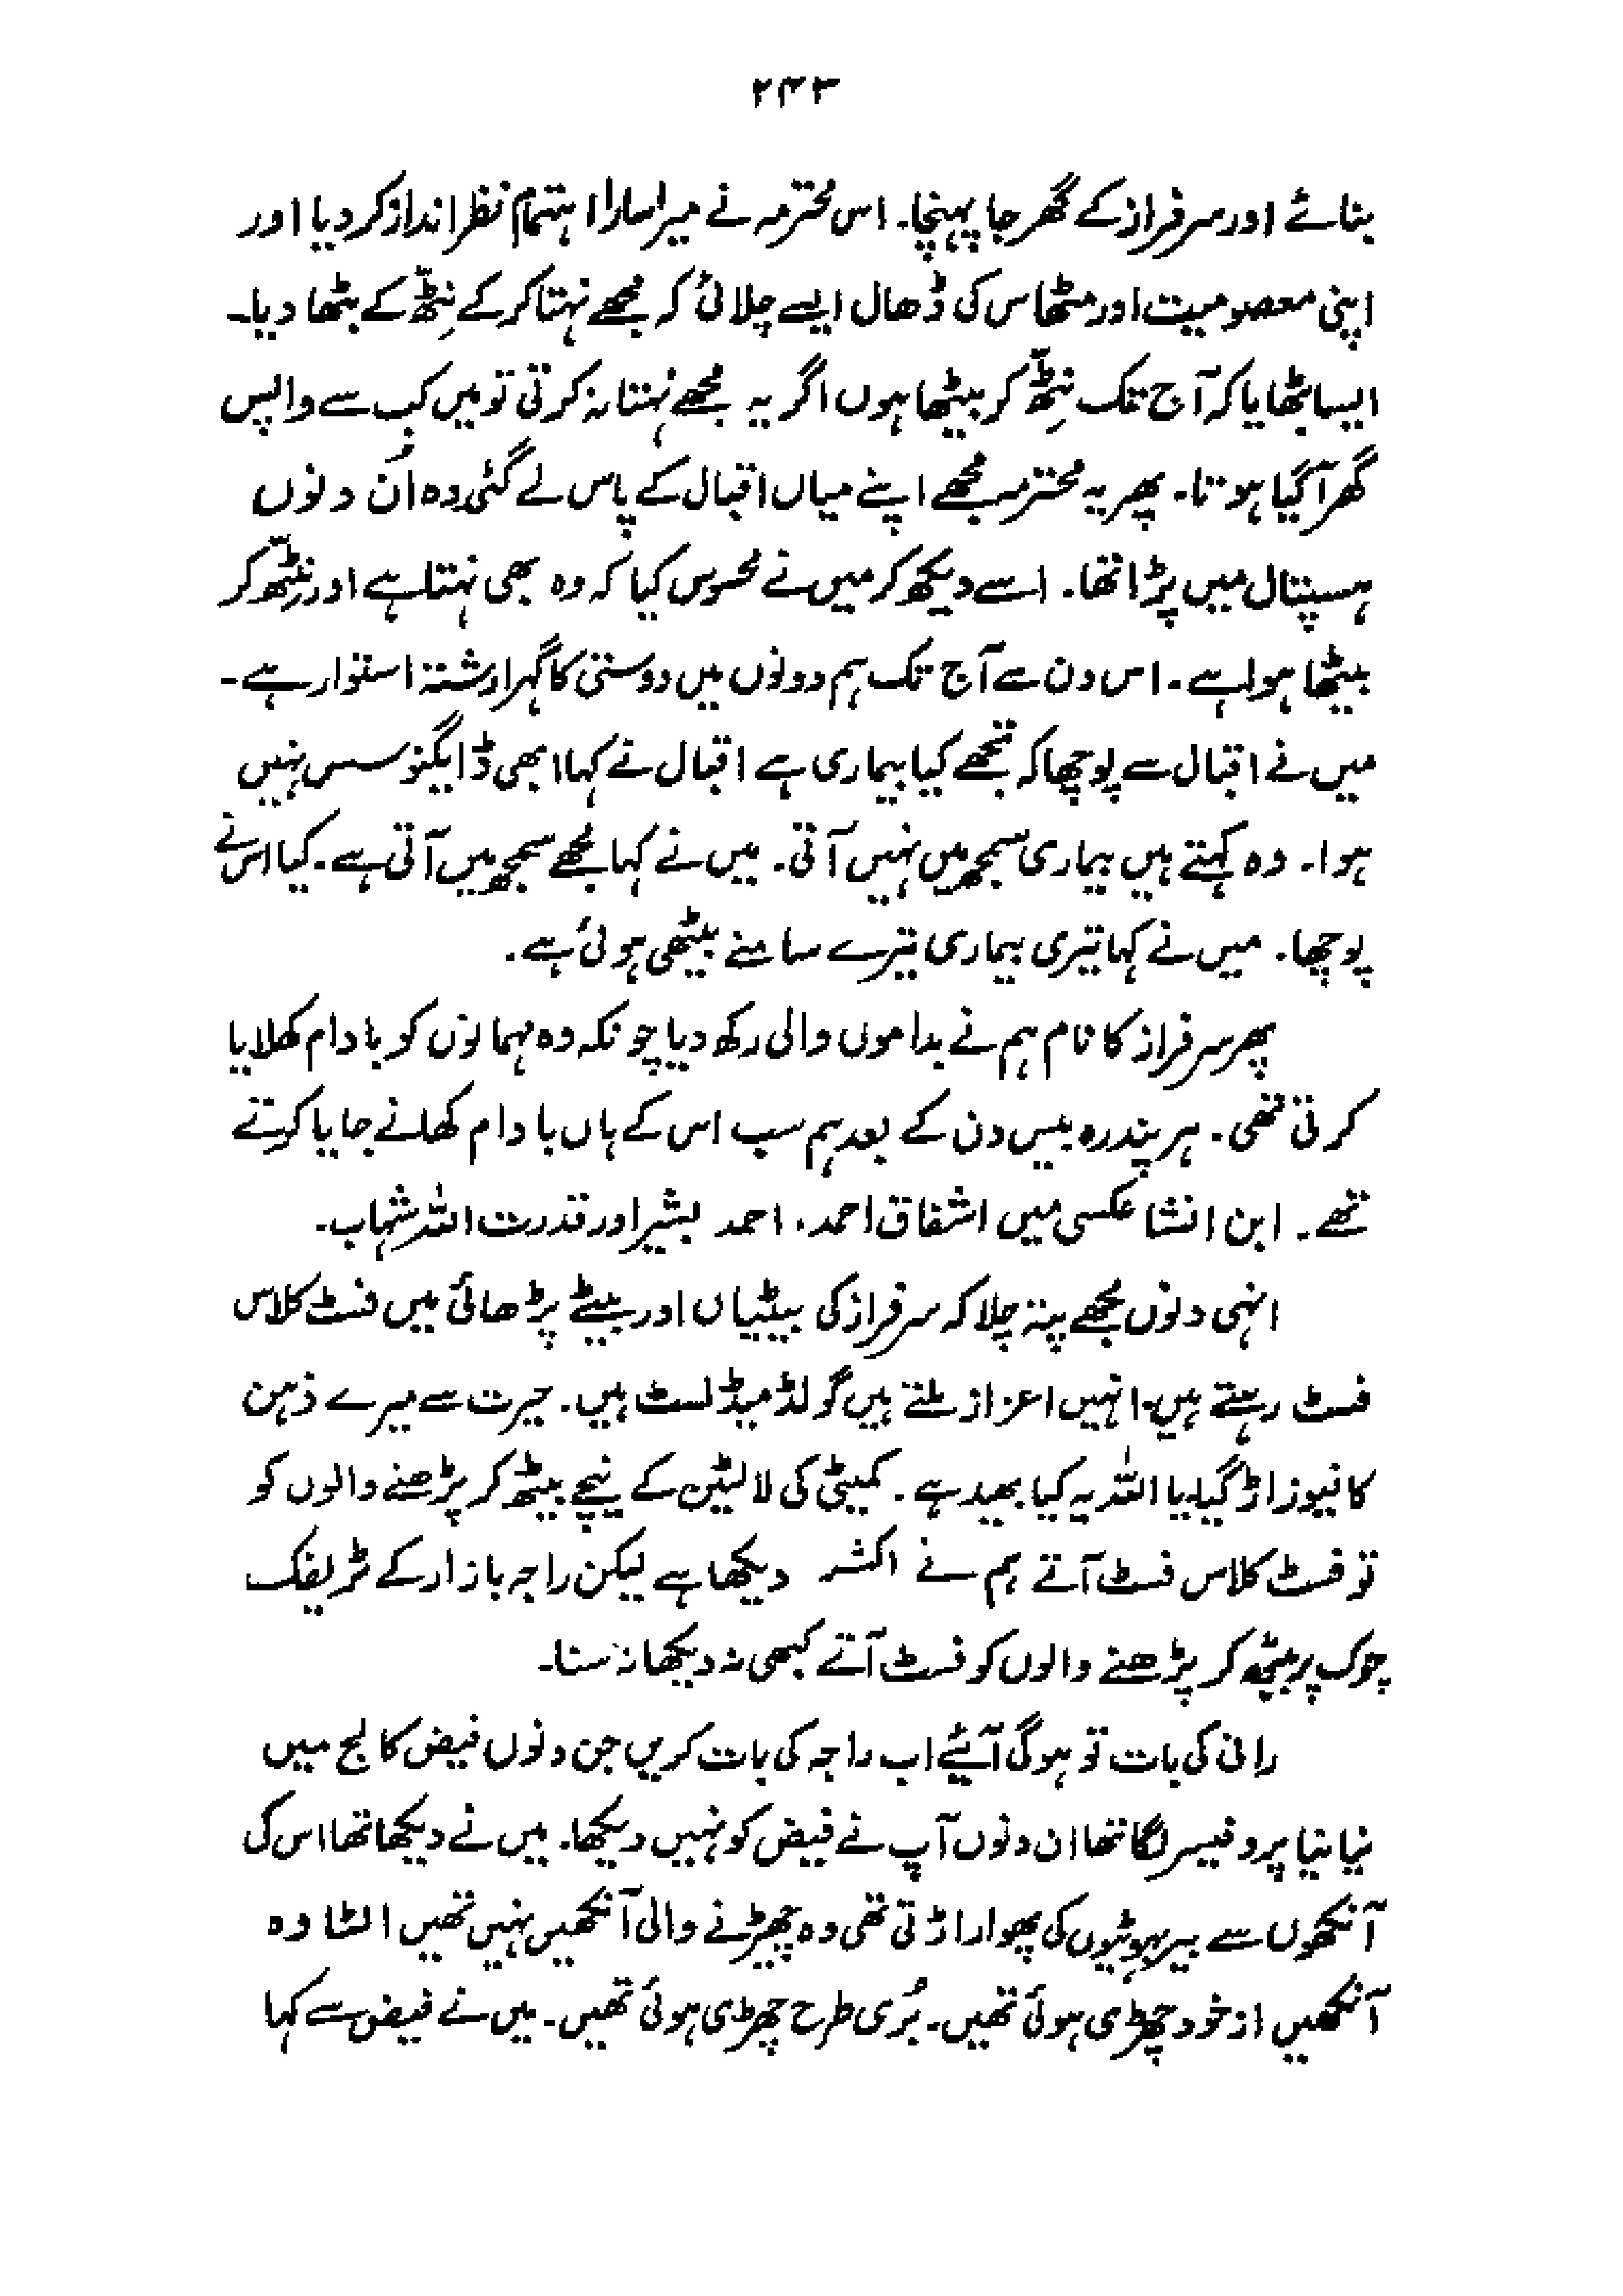 ۲۴۳
بنائے اور سرفراز کے گھر جا پہنچا۔ اس محترمہ نے میرا سارا اہتمام نظر انداز کر دیا اور
اپنی معصومیت اور مٹھاس کی ڈھال ایسے چلائی کہ مجھے نہتا کر کے نِٹھّ کے بٹھا دیا۔
ایسا بٹھایا کہ آج تک نِٹھّ کر بیٹھا ہوں اگر یہ مجھے نہتا نہ کرتی تو میں کب سے واپس
گھر آگیا ہوتا۔ پھر یہ محترمہ مجھے اپنے میاں اقبال کے پاس لے گئی وہ اُن دنوں
ہسپتال میں پڑا تھا۔ اسے دیکھ کر میں نے محسوس کیا کہ وہ بھی نہتا ہے اور نِٹھّ کر
بیٹھا ہوا ہے۔ اس دن سے آج تک ہم دونوں میں دوستی کا گہرا رشتہ استوار ہے۔
میں نے اقبال سے پوچھا کہ تجھے کیا بیماری ہے اقبال نے کہا ابھی ڈایگنوسس نہیں
ہوا۔ وہ کہتے ہیں بیماری سمجھ میں نہیں آتی۔ میں نے کہا مجھے سمجھ میں آتی ہے۔ کیا اس نے
پوچھا۔ میں نے کہا تیری بیماری تیرے سامنے بیٹھی ہوئی ہے۔
پھر سرفراز کا نام ہم نے بداموں والی رکھ دیا چونکہ وہ مہمانوں کو بادام کھلایا
کرتی تھی۔ ہر پندرہ بیس دن کے بعد ہم سب اس کے ہاں بادام کھانے جایا کرتے
تھے۔ ابن انشا عکسی میں اشفاق احمد، احمد بشیر اور قدرت اللہ شہاب۔
انہی دنوں مجھے پتہ چلا کہ سرفراز کی بیٹیاں اور بیٹے پڑھائی میں فسٹ کلاس
فسٹ رہتے ہیں۔ انہیں اعزاز ملتے ہیں گولڈ میڈلسٹ ہیں۔ حیرت سے میرے ذہن
کا نیوز اڑ گیا۔ یا اللہ یہ کیا بھید ہے۔ کمیٹی کی لالٹین کے نیچے بیٹھ کر پڑھنے والوں کو
تو فسٹ کلاس فسٹ آتے ہم نے اکثر دیکھا ہے لیکن راجہ بازار کے ٹریفک
چوک پر بیٹھ کر پڑھنے والوں کو فسٹ آتے کبھی نہ دیکھا نہ سنا۔
رانی کی بات تو ہوگی آئیے اب راجہ کی بات کریں جن دنوں فیض کالج میں
نیا نیا پروفیسر لگا تھا ان دنوں آپ نے فیض کو نہیں دیکھا۔ میں نے دیکھا تھا اس کی
آنکھوں سے بیر بہوٹیوں کی پھوار اڑتی تھی وہ چھیڑنے والی آنکھیں نہیں تھیں الٹا وہ
آنکھیں از خود چھڑی ہوئی تھیں۔ بُری طرح چھڑی ہوئی تھیں۔ میں نے فیض سے کہا